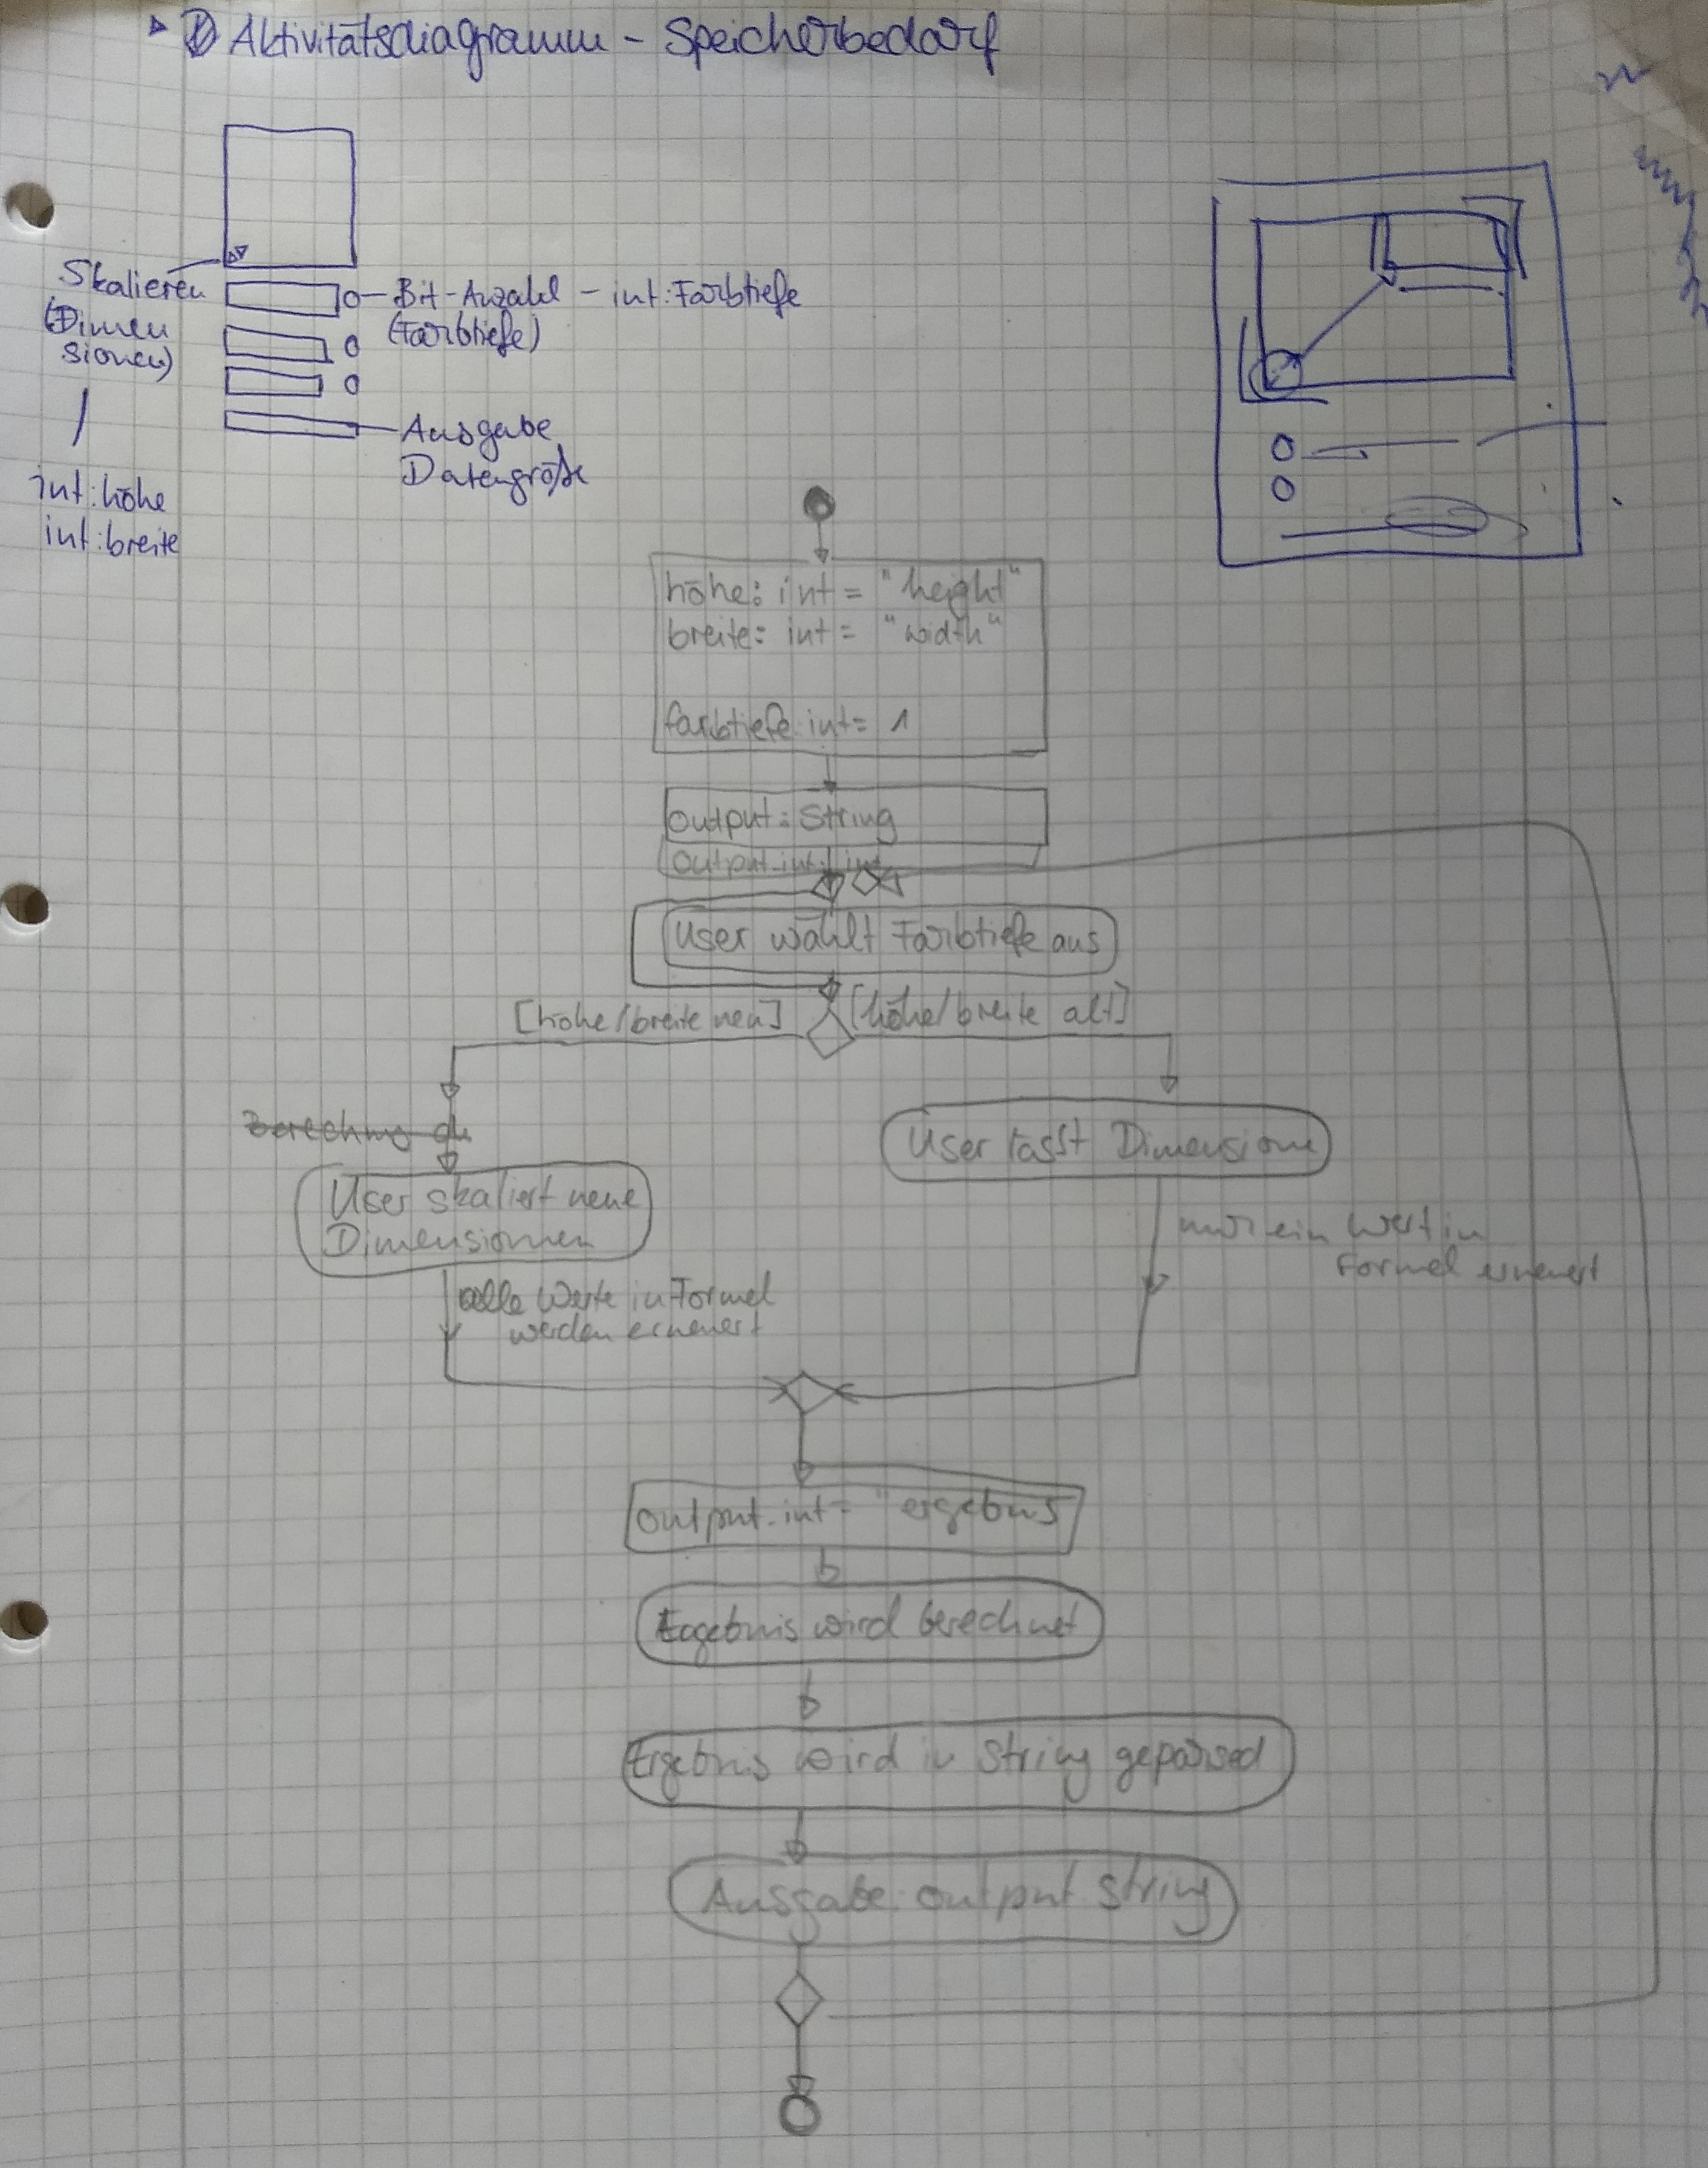 Aktivitätsdiagramm - Speicherbedarf
Skalieren
(Dimen
sionen)
int:höhe
int:breite
Bit-Anzahl - int:Farbtiefe
(Farbtiefe)
Ausgabe
Datengröße
höhe: int = "height"
breite: int = "width"
farbtiefe:int= 1
output: String
output.int: int
User wählt Farbtiefe aus
[höhe/breite neu]
[höhe/breite alt]
Berechnung
User skaliert neue
Dimensionen
User lässt Dimensione
alle Werte in Formel
werden erneuert
nur ein Wert in
Formel erneuert
output.int= "ergebnis
Ergebnis wird berechnet
Ergebnis wird in String geparsed
Ausgabe: output String